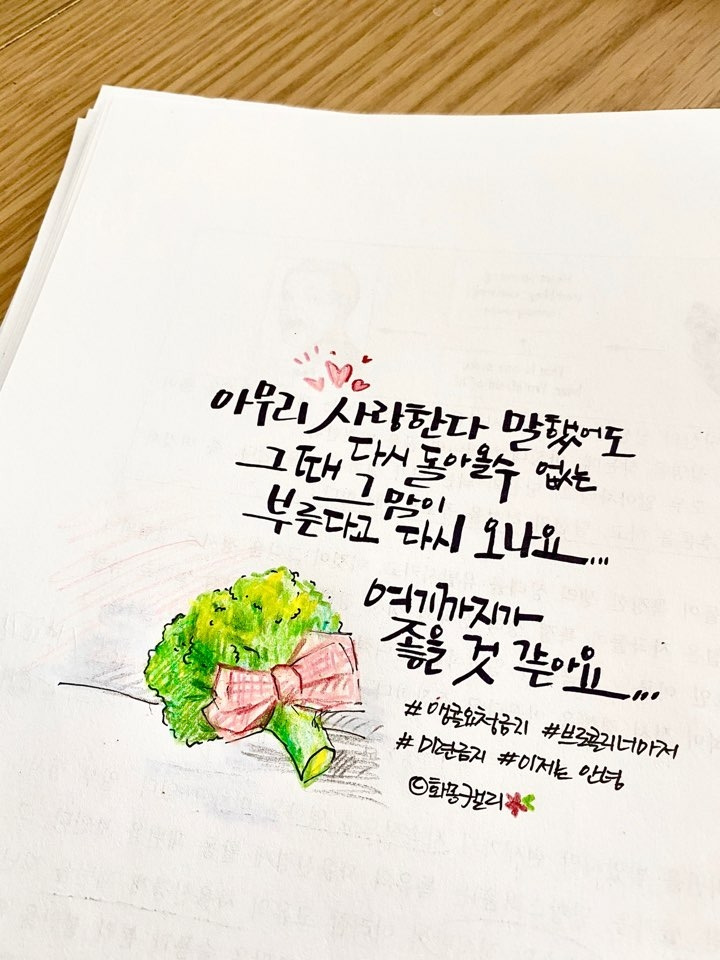 아무리 사랑한다 말했어도
다시 돌아올수 없는
그때 그 말이
부른다고 다시 오나요...
여기까지가
좋을 것 같아요...
#앵콜요청금지 #브로콜리너마저
#미련금지 #이제는 안녕